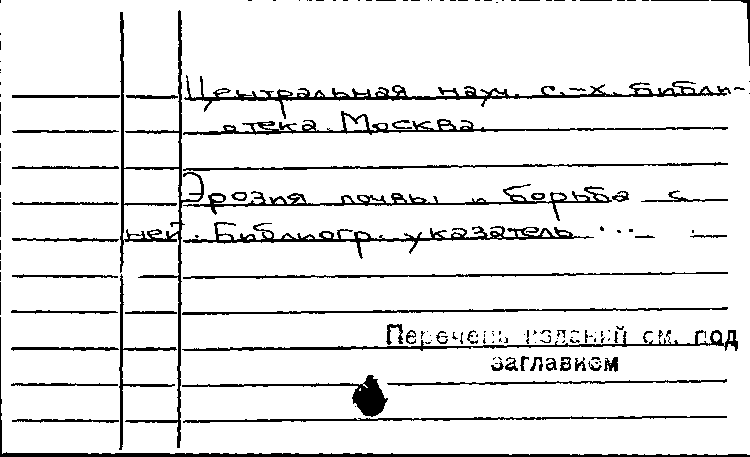 Центральная науч. с.-х. библи-
отека. Москва.
Эрозия почвы и борьба с
ней. Библиогр. указатель ...
Перечень изданий см. под
заглавием